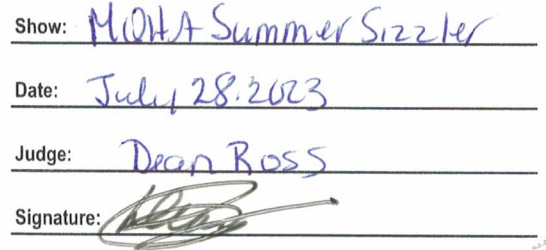 Show: MQHA Summer Sizzler
Date: July 28.2023
Judge: Dean Ross
Signature: